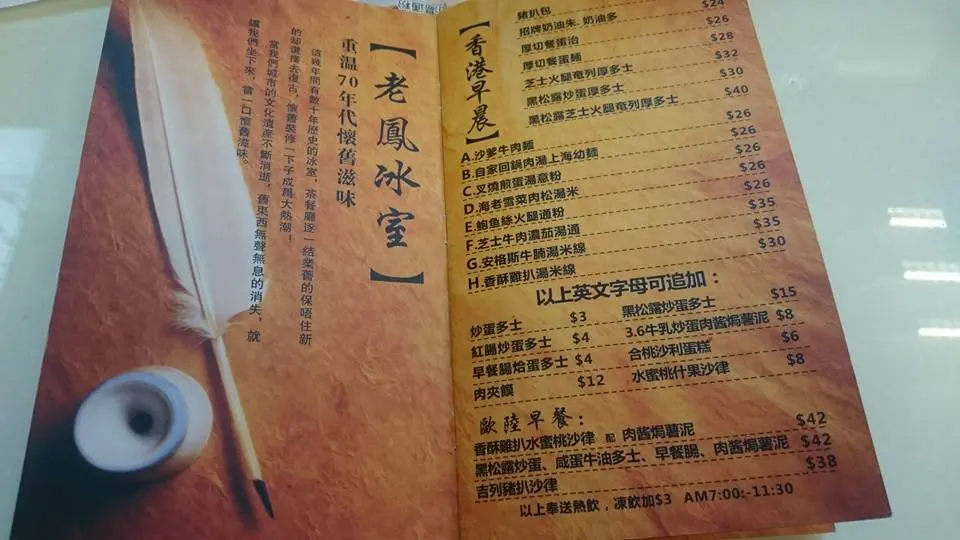 【老鳳冰室】
重温70年代懷舊滋味
這幾年間有數十年歷史的冰室,茶餐廳逐一結業舊的保唔住新
的却選擇去復古,懷舊裝修一下子成為大熱潮!
當我們城市的文化遺產不斷消逝,舊東西無聲無息的消失,就
讓我們坐下來,嘗一口懷舊滋味。
【香港早晨】
豬扒包
招牌奶油朱. 奶油多 $24
厚切餐蛋治 $26
厚切餐蛋麵 $28
芝士火腿奄列厚多士 $32
黑松露炒蛋厚多士 $30
黑松露芝士火腿奄列厚多士 $40
A.沙爹牛肉麵 $26
B.自家回鍋肉湯上海幼麵 $26
C.叉燒煎蛋湯意粉 $26
D.海老雪菜肉松湯米 $26
E.鮑魚絲火腿通粉 $26
F.芝士牛肉濃茄湯通 $35
G.安格斯牛腩湯米線 $35
H.香酥雞扒湯米線 $30
以上英文字母可追加：
炒蛋多士 $3 黑松露炒蛋多士 $15
紅腸炒蛋多士 $4 3.6牛乳炒蛋肉酱焗薯泥 $8
早餐腸烚蛋多士 $4 合桃沙利蛋糕 $6
肉夾饃 $12 水蜜桃什果沙律 $8
歐陸早餐：
香酥雞扒水蜜桃沙律 配 肉酱焗薯泥 $42
黑松露炒蛋、咸蛋牛油多士、早餐腸、肉酱焗薯泥 $42
吉列豬扒沙律 $38
以上奉送熱飲，凍飲加$3 AM7:00:-11:30